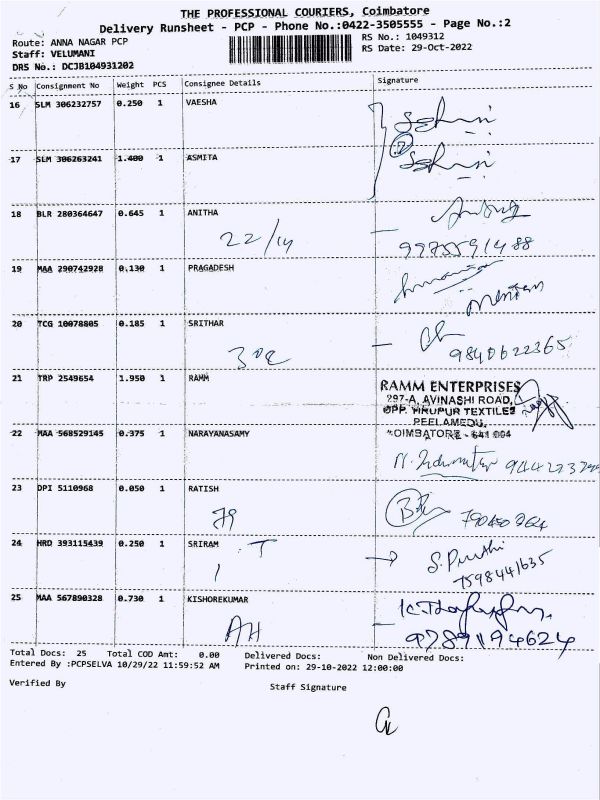 THE PROFESSIONAL COURIERS, Coimbatore
Delivery Runsheet - PCP - Phone No.:0422-3505555 - Page No.:2
Route: ANNA NAGAR PCP
Staff: VELUMANI
DRS No.: DCJB104931202
RS No.: 1049312
RS Date: 29-Oct-2022
S No Consignment No Weight PCS Consignee Details Signature
16 SLM 306232757 0.250 1 VAESHA
17 SLM 306263241 1.400 1 ASMITA
18 BLR 280364647 0.645 1 ANITHA
22/14
9975591488
19 MAA 290742928 0.130 1 PRAGADESH
20 TCG 10078805 0.185 1 SRITHAR
9840622365
21 TRP 2549654 1.950 1 RAMM
RAMM ENTERPRISES
297-A, AVINASHI ROAD,
OPP. TIRUPUR TEXTILES
PEELAMEDU,
COIMBATORE - 641 004
22 MAA 568529145 0.375 1 NARAYANASAMY
23 DPI 5110968 0.050 1 RATISH
24 HRD 393115439 0.250 1 SRIRAM
7598441635
25 MAA 567890328 0.730 1 KISHOREKUMAR
AH
9789194624
Total Docs: 25 Total COD Amt: 0.00 Delivered Docs: Non Delivered Docs:
Entered By :PCPSELVA 10/29/22 11:59:52 AM Printed on: 29-10-2022 12:00:00
Verified By Staff Signature